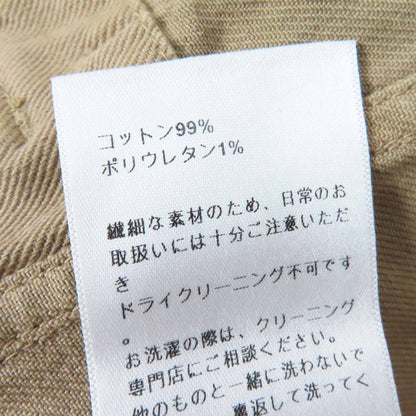 コットン99%
ポリウレタン1%
繊細な素材のため、日常のお
取扱いには十分ご注意いただ
き
ドライクリーニング不可です
。
お洗濯の際は、クリーニング
専門店にご相談ください。
他のものと一緒に洗わないで
返して洗ってく